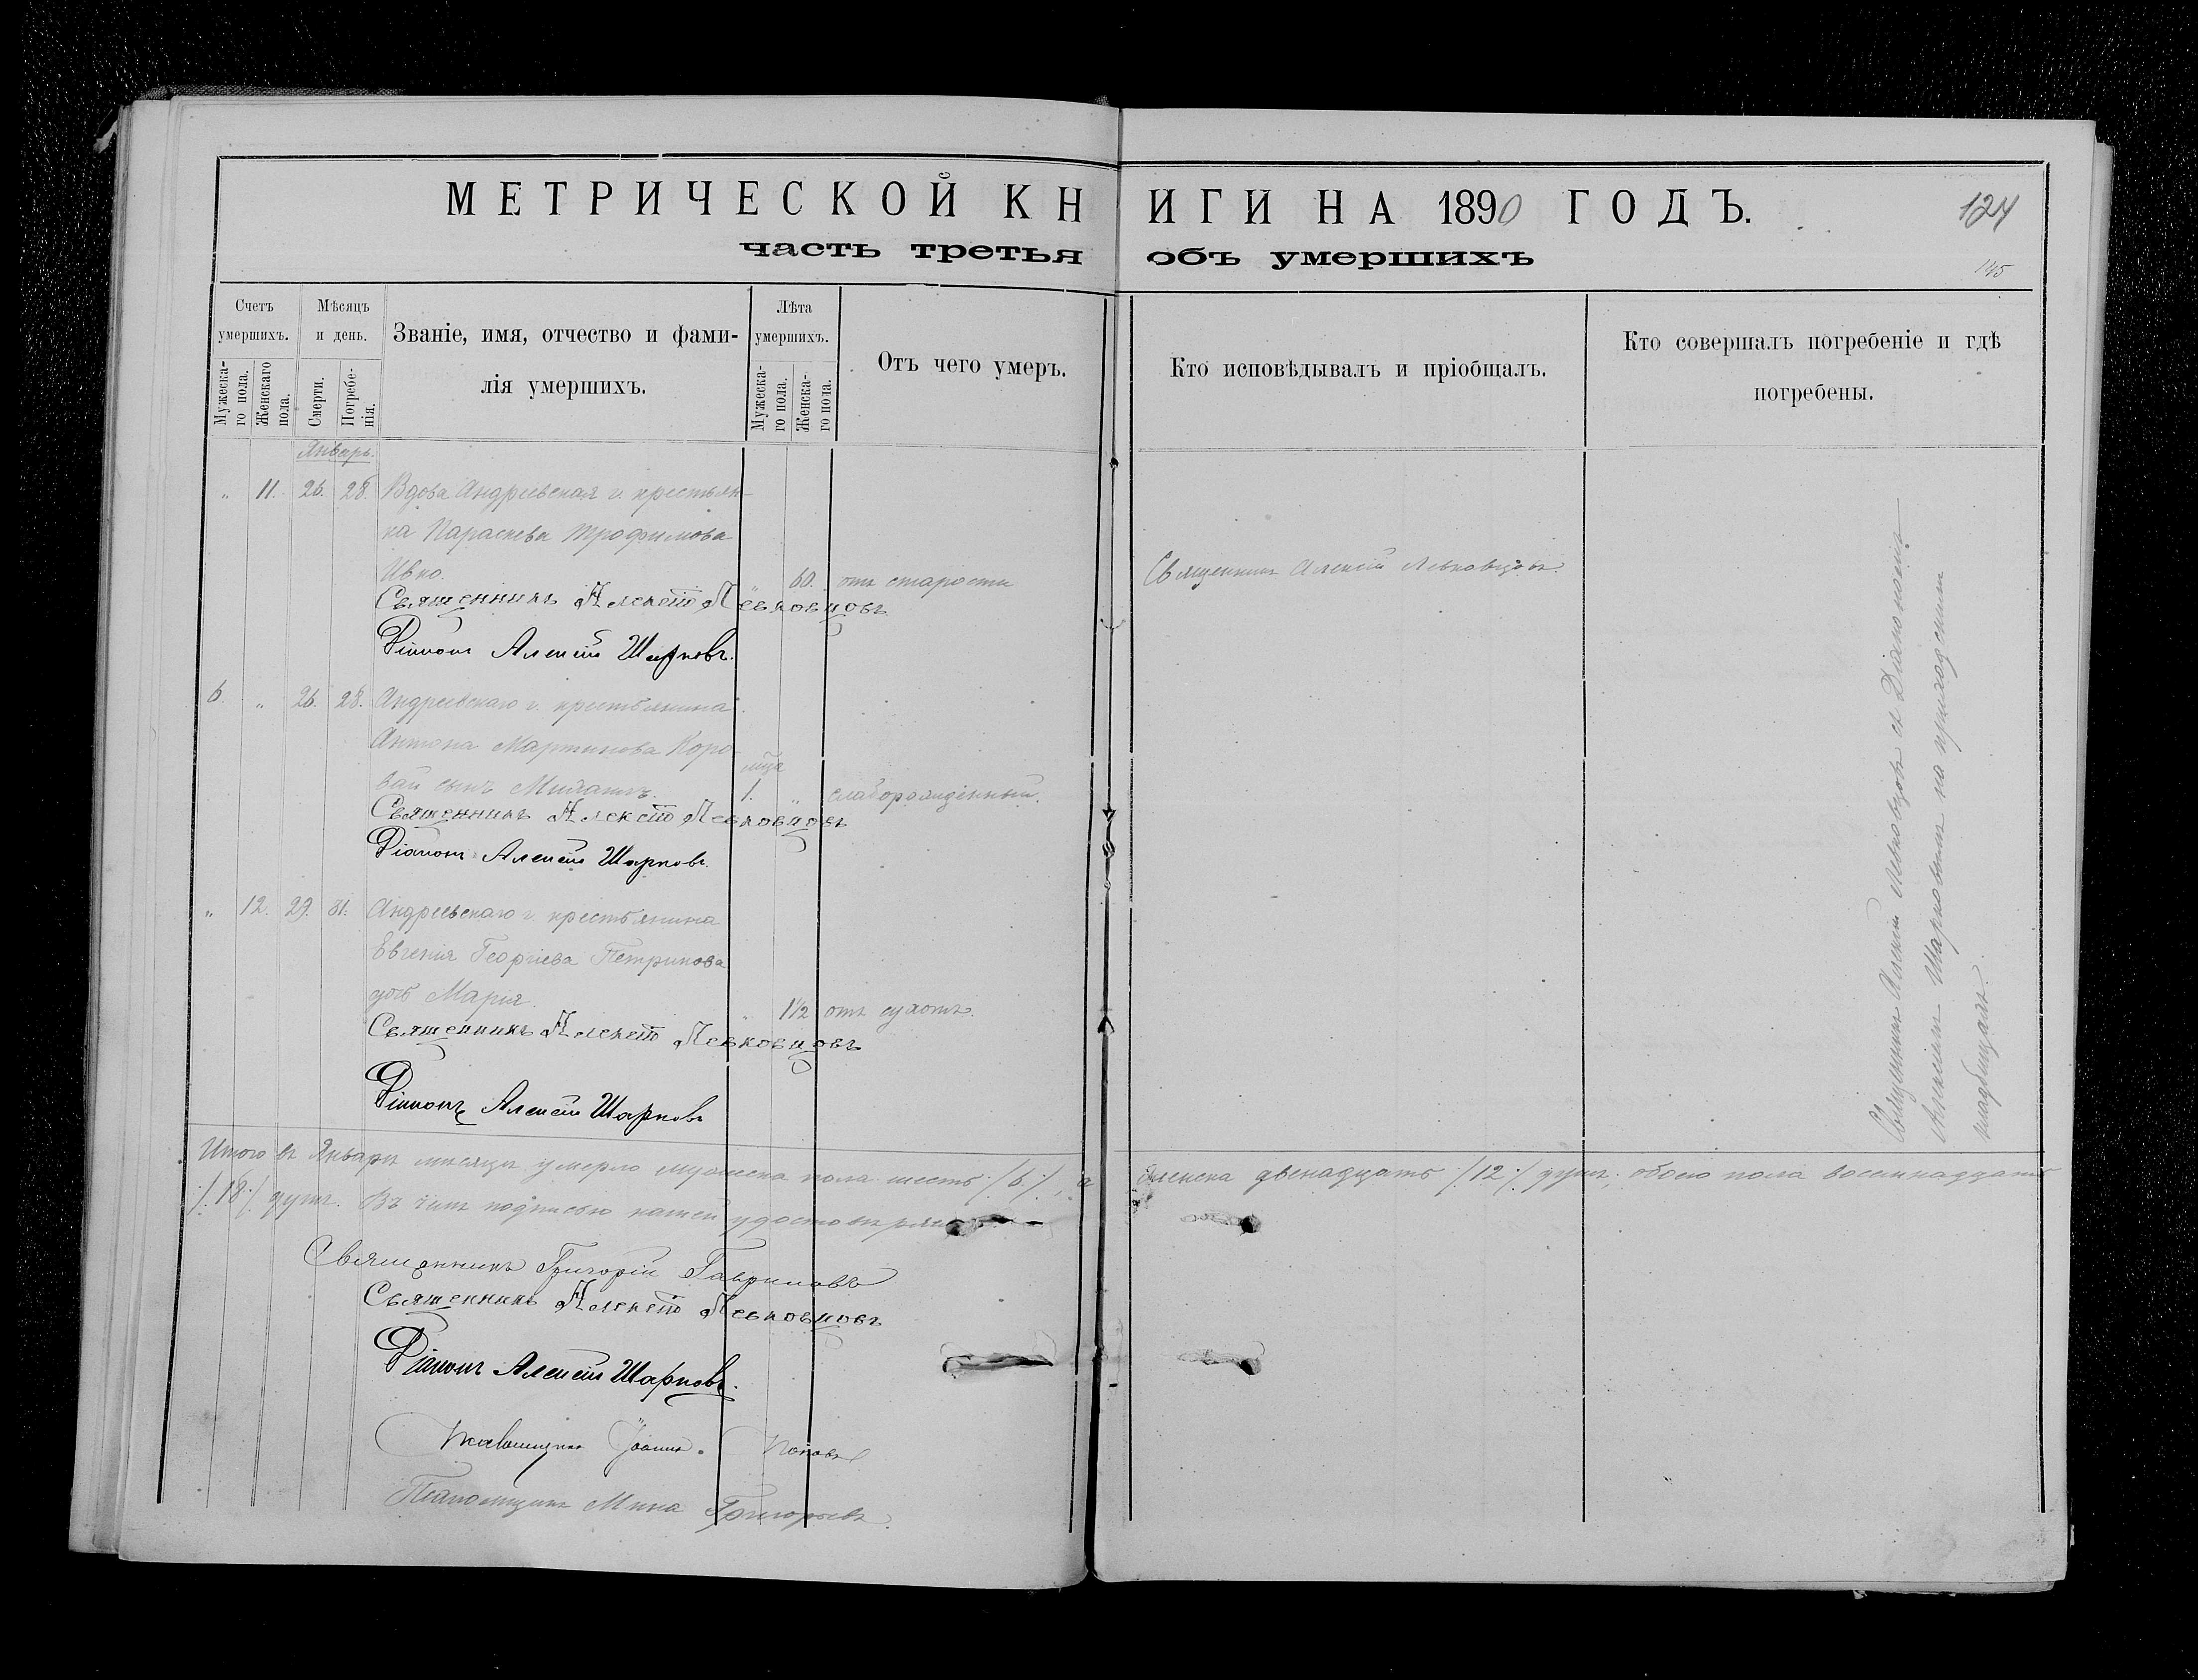 МЕТРИЧЕСКОЙ КНИГИ НА 1890 ГОДЪ.
124
часть третья объ умершихъ
145
Счетъ умершихъ.
Мужеска-го пола.
Женскаго пола.
Мѣсяцъ и день.
Смерти.
Погребе-нія.
Званіе, имя, отчество и фами-
лія умершихъ.
Лѣта умершихъ.
Мужеска-го пола.
Женска-го пола.
Отъ чего умеръ.
Кто исповѣдывалъ и пріобщалъ.
Кто совершалъ погребеніе и гдѣ
погребены.
Январь.
" 11. 26. 28. Вдова Андреевская г. крестьян-
ка Параскева Трофимова
Ивко. " 60. отъ старости
Священникъ Алексій Левковцовъ.
Священникъ Алексѣй Левковцовъ
Діаконъ Алексій Шарковъ.
6. " 26. 28. Андреевскаго г. крестьянина
Антона Мартинова Коро-
вай сынъ 1. " слаборожденный.
Священникъ Алексѣй Левковцовъ
Діаконъ Алексій Шарковъ.
" 12. 29. 31. Андреевскаго г. крестьянина
Евгенія Георгіева Петрикова
дочь Марія. " 1½ отъ сухотъ.
Священникъ Алексѣй Левковцовъ
Діаконъ Алексій Шарковъ
Священникъ Алексій Левковцовъ съ Діакономъ
Алексіемъ Шарковымъ на приходскомъ
кладбищѣ.
Итого въ Январѣ мѣсяцѣ умерло мужеска пола шесть /:6:/, а женска двенадцать /:12:/ душъ, обоего пола восемнадцать
/:18:/ душъ. Въ чемъ подписью нашей удостовѣряемъ
Священникъ Григорій Гавриловъ
Священникъ Алексѣй Левковцовъ
Діаконъ Алексій Шарковъ.
Псаломщикъ Іоаннъ Поповъ
Псаломщикъ Мина Григорьевъ.